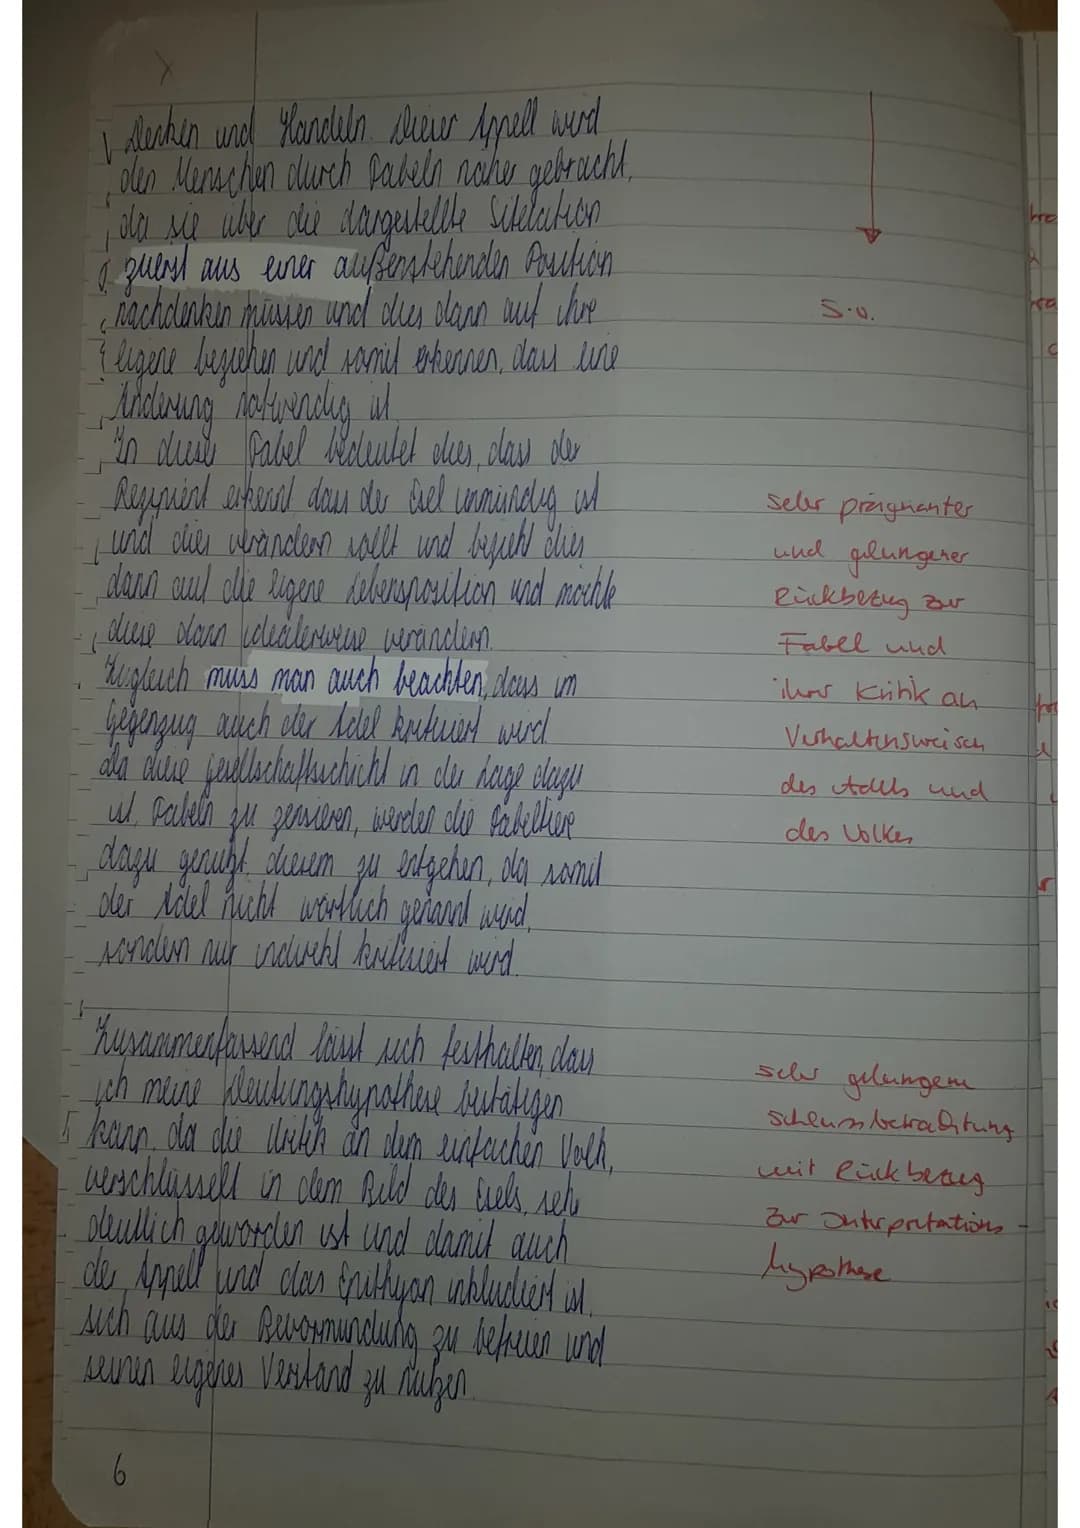 Denken und Handeln. Dieser Appell wird
den Menschen durch Fabeln näher gebracht,
da sie über die dargestellte Situation
zuerst aus einer außenstehenden Position
nachdenken müssen und dies dann auf ihre
eigene beziehen und somit erkennen, dass eine
Änderung notwendig ist.
In dieser Fabel bedeutet dies, dass der
Rezipient erkennt dass der Esel unmündig ist
und dies verändern sollt und bezieht dies
dann auf die eigene Lebensposition und möchte
diese dann idealerweise verändern.
Zugleich muss man auch beachten, dass im
Gegenzug auch der Adel kritisiert wird.
Da diese Gesellschaftsschicht in der Lage dazu
ist, Fabeln zu zensieren, werden die Fabeltiere
dazu genutzt diesem zu entgehen, da somit
der Adel nicht wörtlich genannt wird,
sondern nur indirekt kritisiert wird.
Zusammenfassend lässt sich festhalten, dass
ich meine Deutungshypothese bestätigen
kann, da die Kritik an dem einfachen Volk,
verschlüsselt in dem Bild des Esels, sehr
deutlich geworden ist und damit auch
der Appell und das inkludiert ist,
sich aus der Bevormundung zu befreien und
seinen eigenes Verstand zu nutzen.
6
s.o.
sehr prägnanter
und gelungener
Rückbezug zur
Fabel und
ihrer Kritik an
Verhaltensweisen
des Adels und
des Volkes
sehr gelungene
Schlussbetrachtung
mit Rückbezug
zur Interpretations-
hypothese